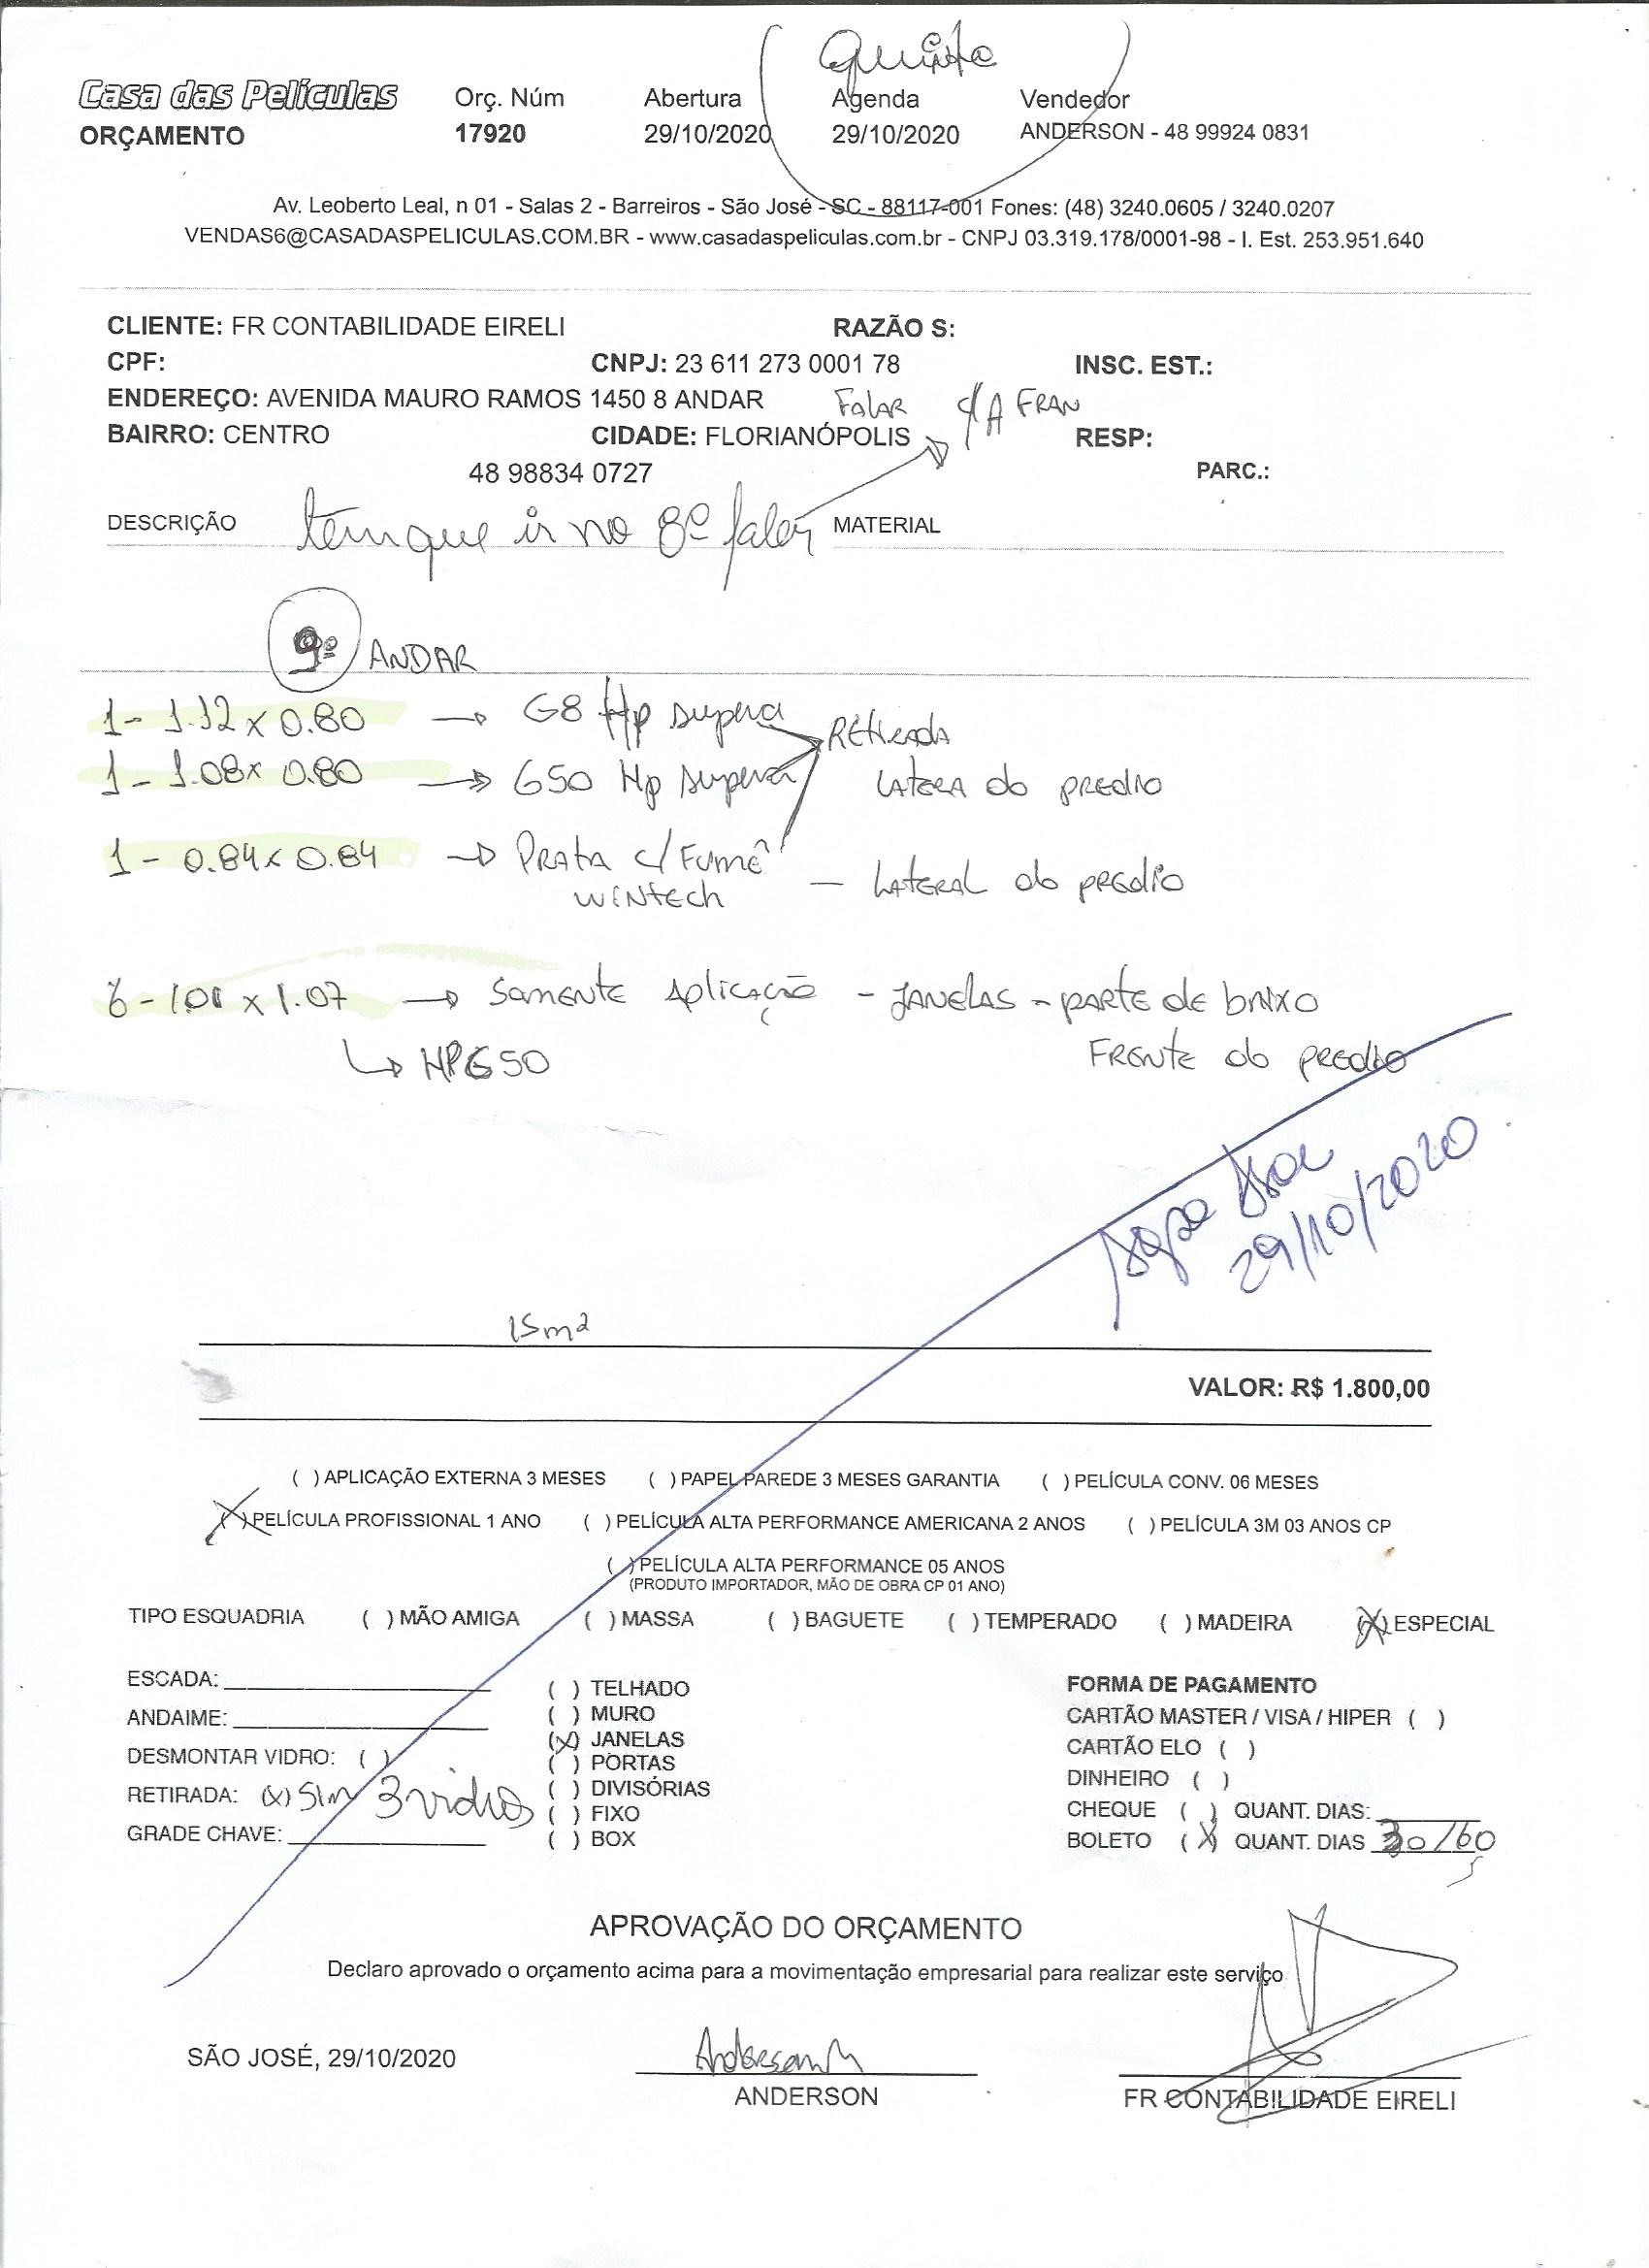 Quinta
Casa das Películas Orç. Núm Abertura Agenda Vendedor
ORÇAMENTO 17920 29/10/2020 29/10/2020 ANDERSON - 48 99924 0831
Av. Leoberto Leal, n 01 - Salas 2 - Barreiros - São José - SC - 88117-001 Fones: (48) 3240.0605 / 3240.0207
VENDAS6@CASADASPELICULAS.COM.BR - www.casadaspeliculas.com.br - CNPJ 03.319.178/0001-98 - I. Est. 253.951.640
CLIENTE: FR CONTABILIDADE EIRELI RAZÃO S:
CPF: CNPJ: 23 611 273 0001 78 INSC. EST.:
ENDEREÇO: AVENIDA MAURO RAMOS 1450 8 ANDAR Falar c/A FRAN
BAIRRO: CENTRO CIDADE: FLORIANÓPOLIS RESP:
48 98834 0727 PARC.:
DESCRIÇÃO tem que ir no 8º falar MATERIAL
9º ANDAR
1 - 1.12 x 0.80 → G8 Hp supera RETIRADA
1 - 1.08 x 0.80 → G50 Hp supera LATERA do PREDIO
1 - 0.84 x 0.84 → PRATA c/ FUMÊ - LATERAL do PREDIO
WINTECH
6 - 1.01 x 1.07 → SOMENTE APLICAÇÃO - JANELAS - PARTE DE BAIXO
↳ HPG50 FRENTE do PREDIO
29/10/2020
15m²
VALOR: R$ 1.800,00
( ) APLICAÇÃO EXTERNA 3 MESES ( ) PAPEL PAREDE 3 MESES GARANTIA ( ) PELÍCULA CONV. 06 MESES
(X) PELÍCULA PROFISSIONAL 1 ANO ( ) PELÍCULA ALTA PERFORMANCE AMERICANA 2 ANOS ( ) PELÍCULA 3M 03 ANOS CP
( ) PELÍCULA ALTA PERFORMANCE 05 ANOS
(PRODUTO IMPORTADOR, MÃO DE OBRA CP 01 ANO)
TIPO ESQUADRIA ( ) MÃO AMIGA ( ) MASSA ( ) BAGUETE ( ) TEMPERADO ( ) MADEIRA (X) ESPECIAL
ESCADA:
ANDAIME:
DESMONTAR VIDRO: ( )
RETIRADA: (x) Sim 3 vidros
GRADE CHAVE:
( ) TELHADO
( ) MURO
(X) JANELAS
( ) PORTAS
( ) DIVISÓRIAS
( ) FIXO
( ) BOX
FORMA DE PAGAMENTO
CARTÃO MASTER / VISA / HIPER ( )
CARTÃO ELO ( )
DINHEIRO ( )
CHEQUE ( ) QUANT. DIAS:
BOLETO (X) QUANT. DIAS 30/60
APROVAÇÃO DO ORÇAMENTO
Declaro aprovado o orçamento acima para a movimentação empresarial para realizar este serviço
SÃO JOSÉ, 29/10/2020
ANDERSON
FR CONTABILIDADE EIRELI